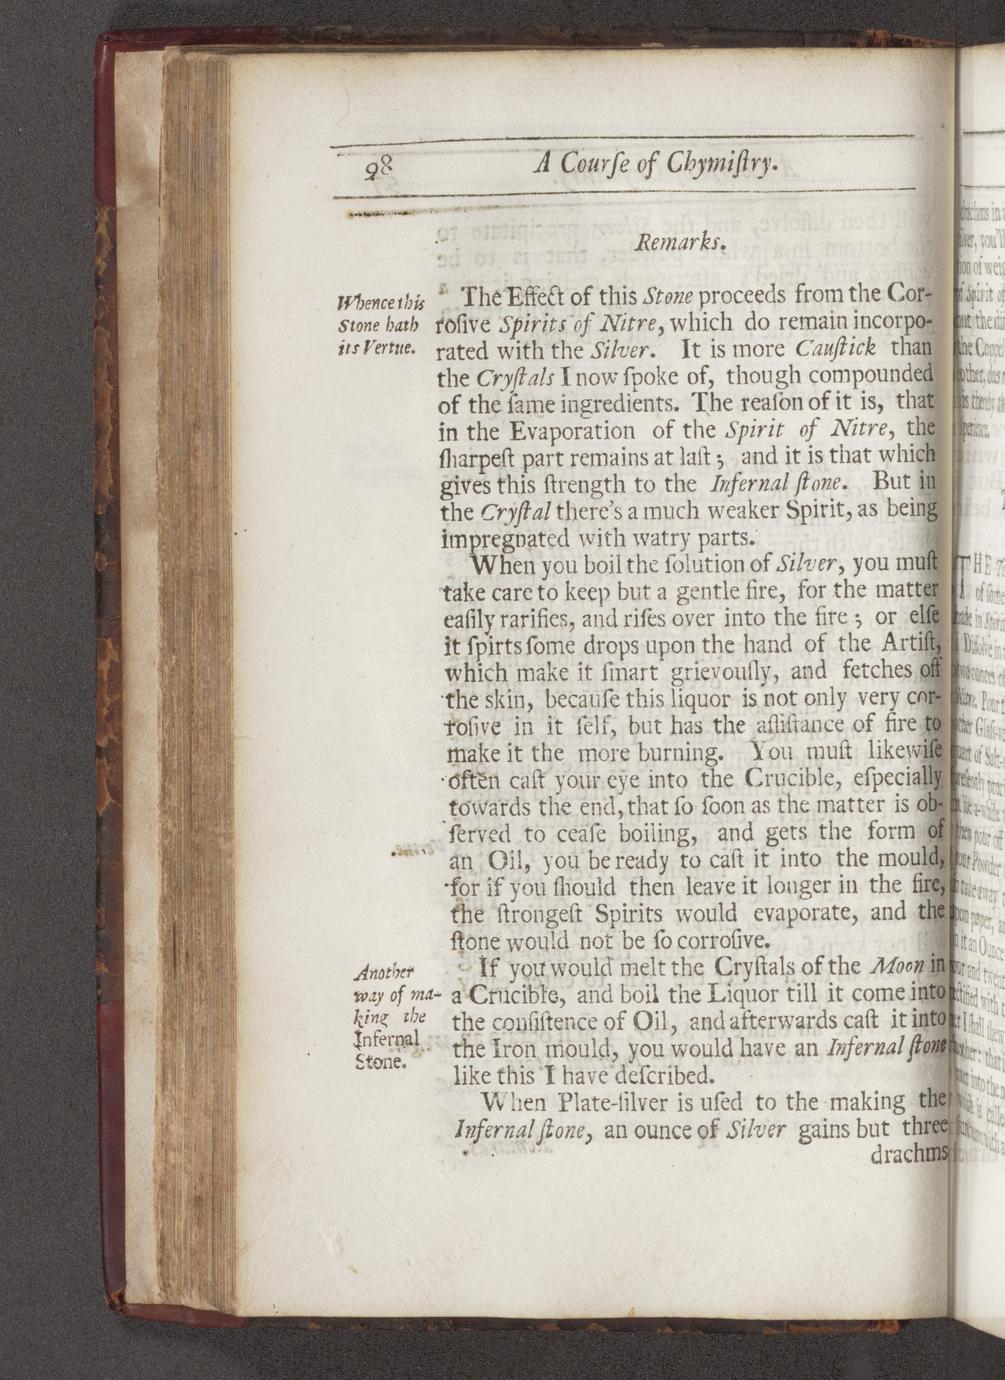 98 A Courſe of Chymiſtry.
Remarks.
Whence this
Stone hath
its Vertue.
The Effect of this Stone proceeds from the Cor-
roſive Spirits of Nitre, which do remain incorpo-
rated with the Silver. It is more Cauſtick than
the Cryſtals I now ſpoke of, though compounded
of the ſame ingredients. The reaſon of it is, that
in the Evaporation of the Spirit of Nitre, the
ſharpeſt part remains at laſt; and it is that which
gives this ſtrength to the Infernal ſtone. But in
the Cryſtal there's a much weaker Spirit, as being
impregnated with watry parts.
When you boil the ſolution of Silver, you muſt
take care to keep but a gentle fire, for the matter
eaſily rarifies, and riſes over into the fire; or elſe
it ſpirts ſome drops upon the hand of the Artiſt,
which make it ſmart grievouſly, and fetches off
the skin, becauſe this liquor is not only very cor-
roſive in it ſelf, but has the aſſiſtance of fire to
make it the more burning. You muſt likewiſe
often caſt your eye into the Crucible, eſpecially
towards the end, that ſo ſoon as the matter is ob-
ſerved to ceaſe boiling, and gets the form of
an Oil, you be ready to caſt it into the mould,
for if you ſhould then leave it longer in the fire,
the ſtrongeſt Spirits would evaporate, and the
ſtone would not be ſo corroſive.
Another
way of ma-
king the
Infernal
Stone.
If you would melt the Cryſtals of the Moon in
a Crucible, and boil the Liquor till it come into
the conſiſtence of Oil, and afterwards caſt it into
the Iron mould, you would have an Infernal ſtone
like this I have deſcribed.
When Plate-ſilver is uſed to the making the
Infernal ſtone, an ounce of Silver gains but three
drachms